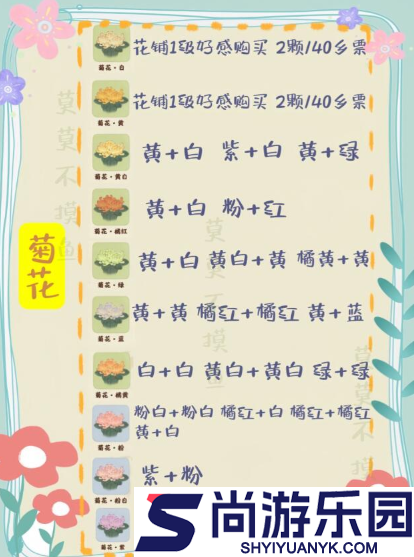 菊花
菊花·白 花铺1级好感购买 2颗/40乡票
菊花·黄 花铺1级好感购买 2颗/40乡票
菊花·黄白 黄+白 紫+白 黄+绿
菊花·橘红 黄+白 粉+红
菊花·绿 黄+白 黄白+黄 橘黄+黄
菊花·蓝 黄+黄 橘红+橘红 黄+蓝
菊花·橘黄 白+白 黄白+黄白 绿+绿
菊花·粉 粉白+粉白 橘红+白 橘红+橘红
黄+白
菊花·粉白 紫+粉
菊花·紫
莫莫不摸鱼
莫莫不摸
莫莫不
尚游乐园
SHYIYUANYK.COM